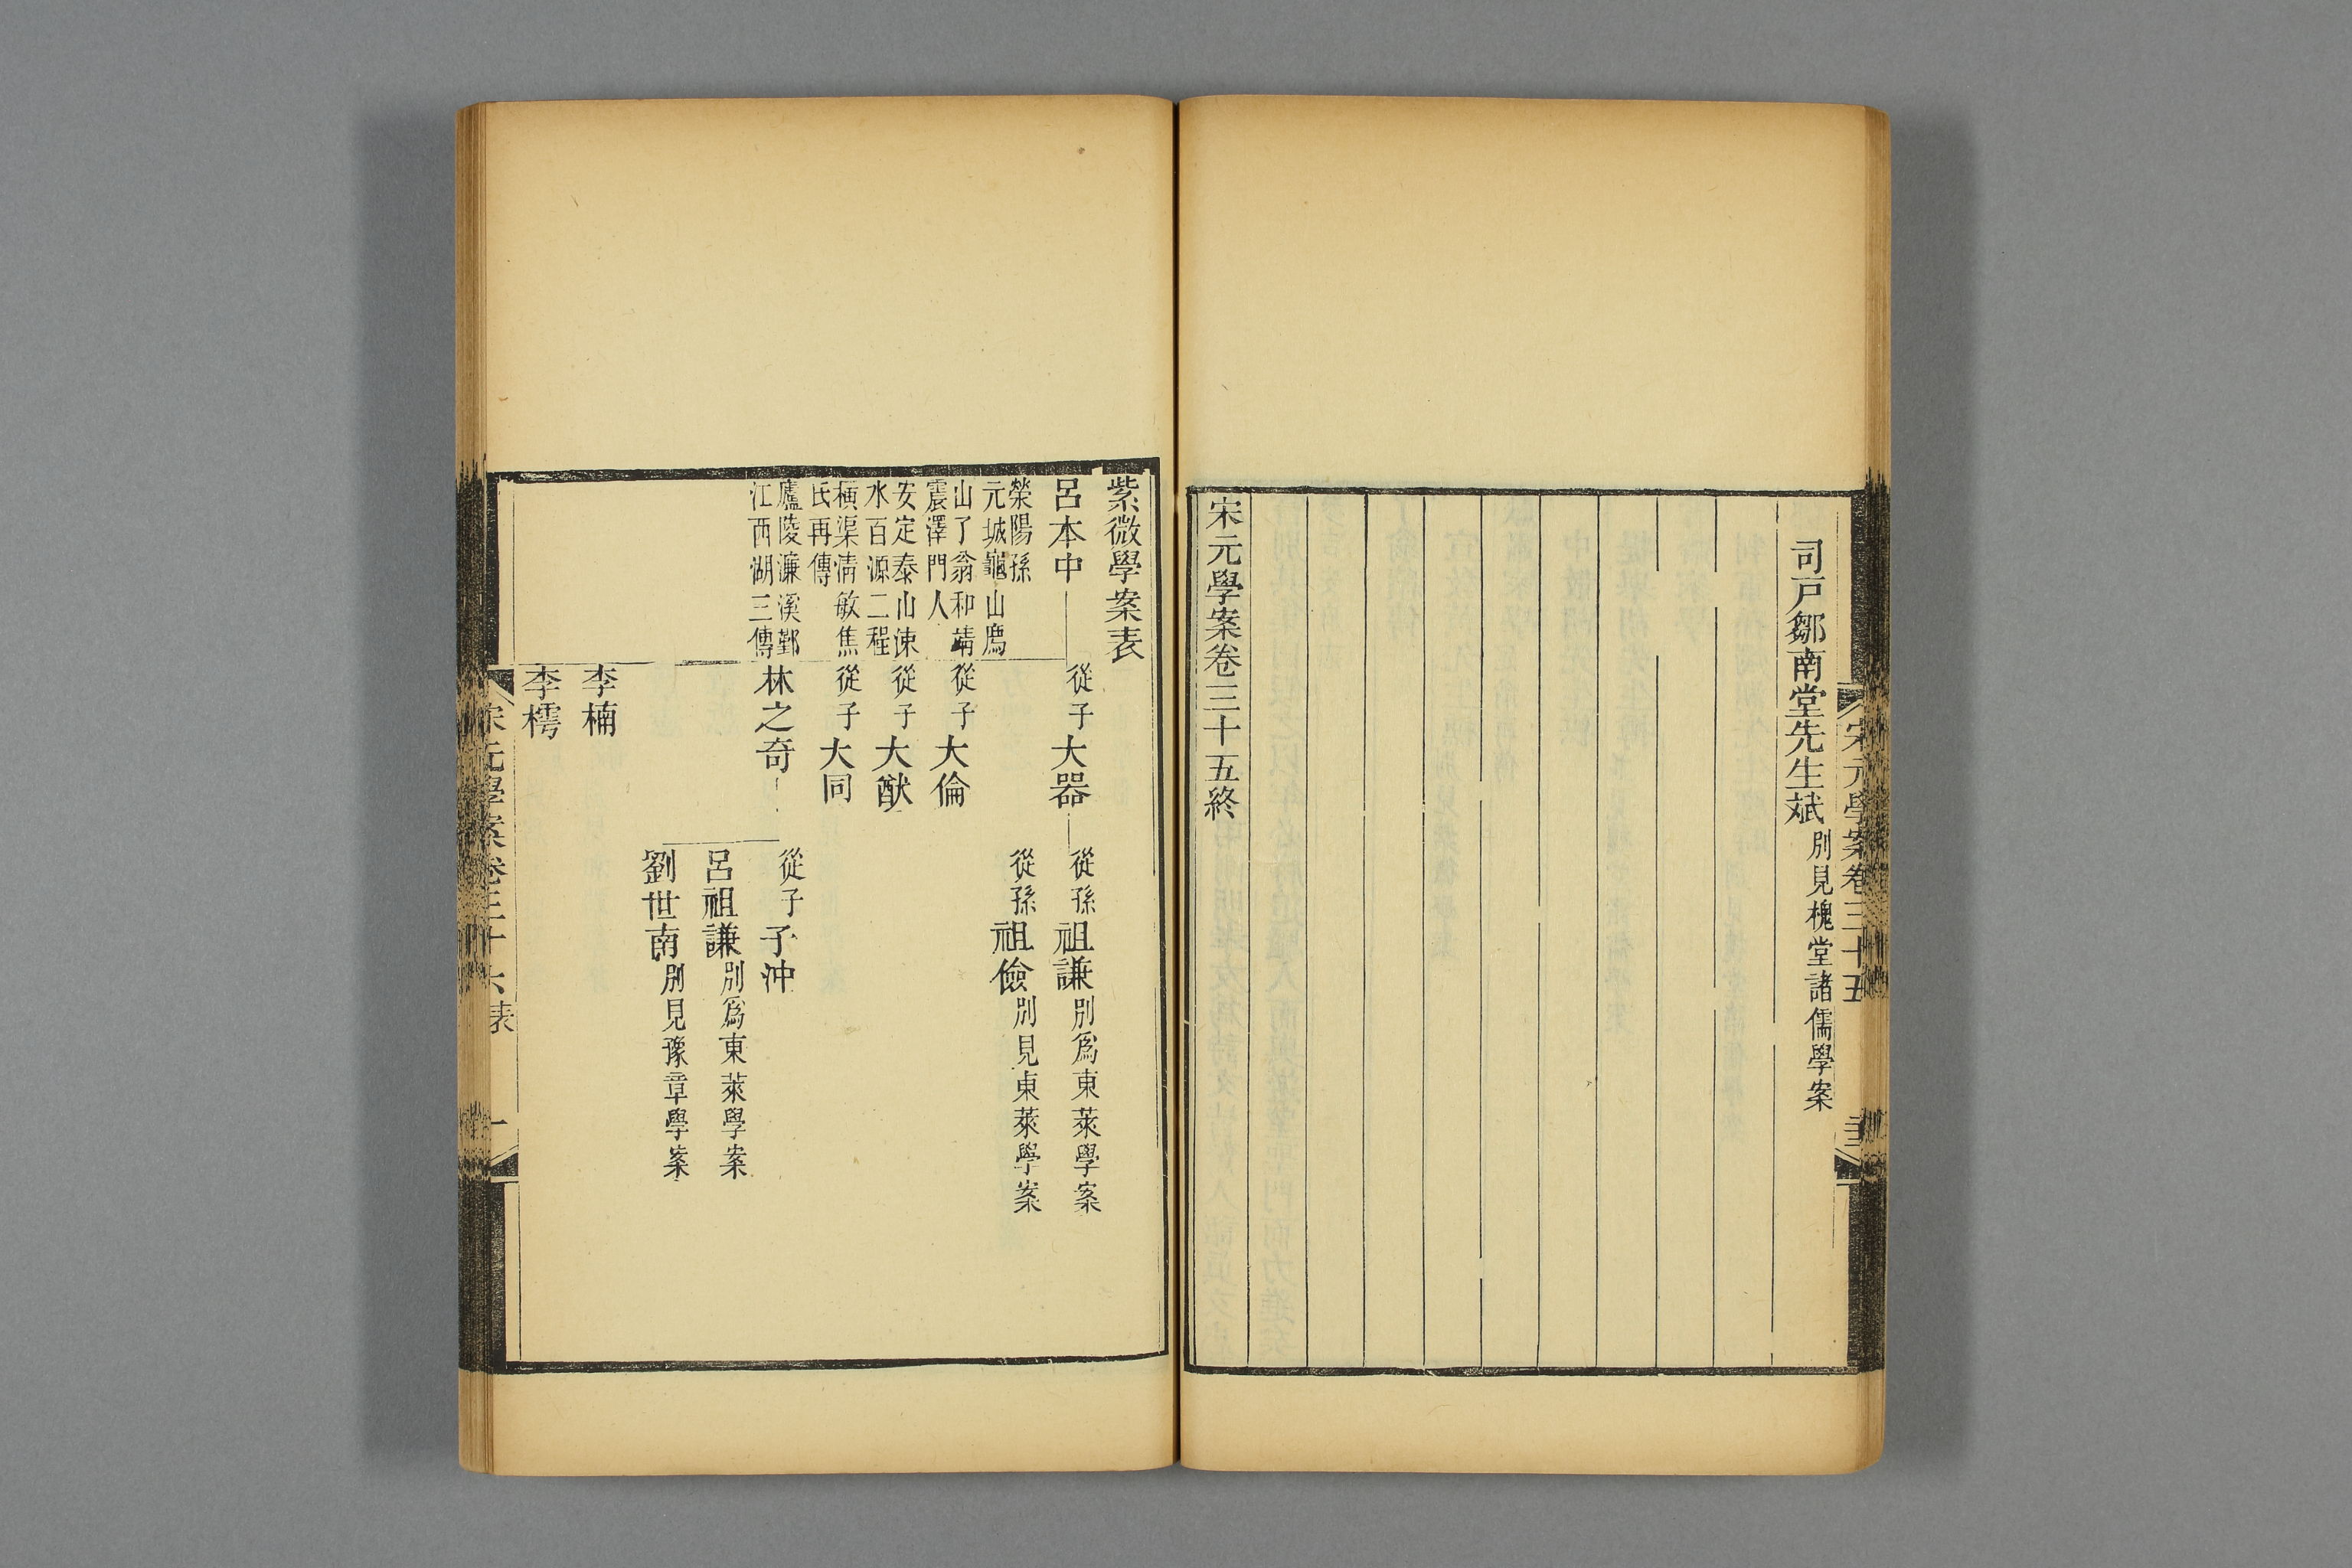 宋元學案卷三十五
司戶鄒南堂先生斌別見槐堂諸儒學案
宋元學案卷三十五終
紫微學案表
呂本中
滎陽孫
元城龜山廌
山了翁和靖
震澤門人
安定泰山涑
水百源二程
橫渠淸敏焦
氏再傳
廬陵濂溪鄞
江西湖三傳
從子大器
從孫祖謙別爲東萊學案
從孫祖儉別見東萊學案
從子大倫
從子大猷
從子大同
林之奇
從子子沖
呂祖謙別爲東萊學案
劉世南別見豫章學案
李楠
李樗
宋元學案卷三十六表
一